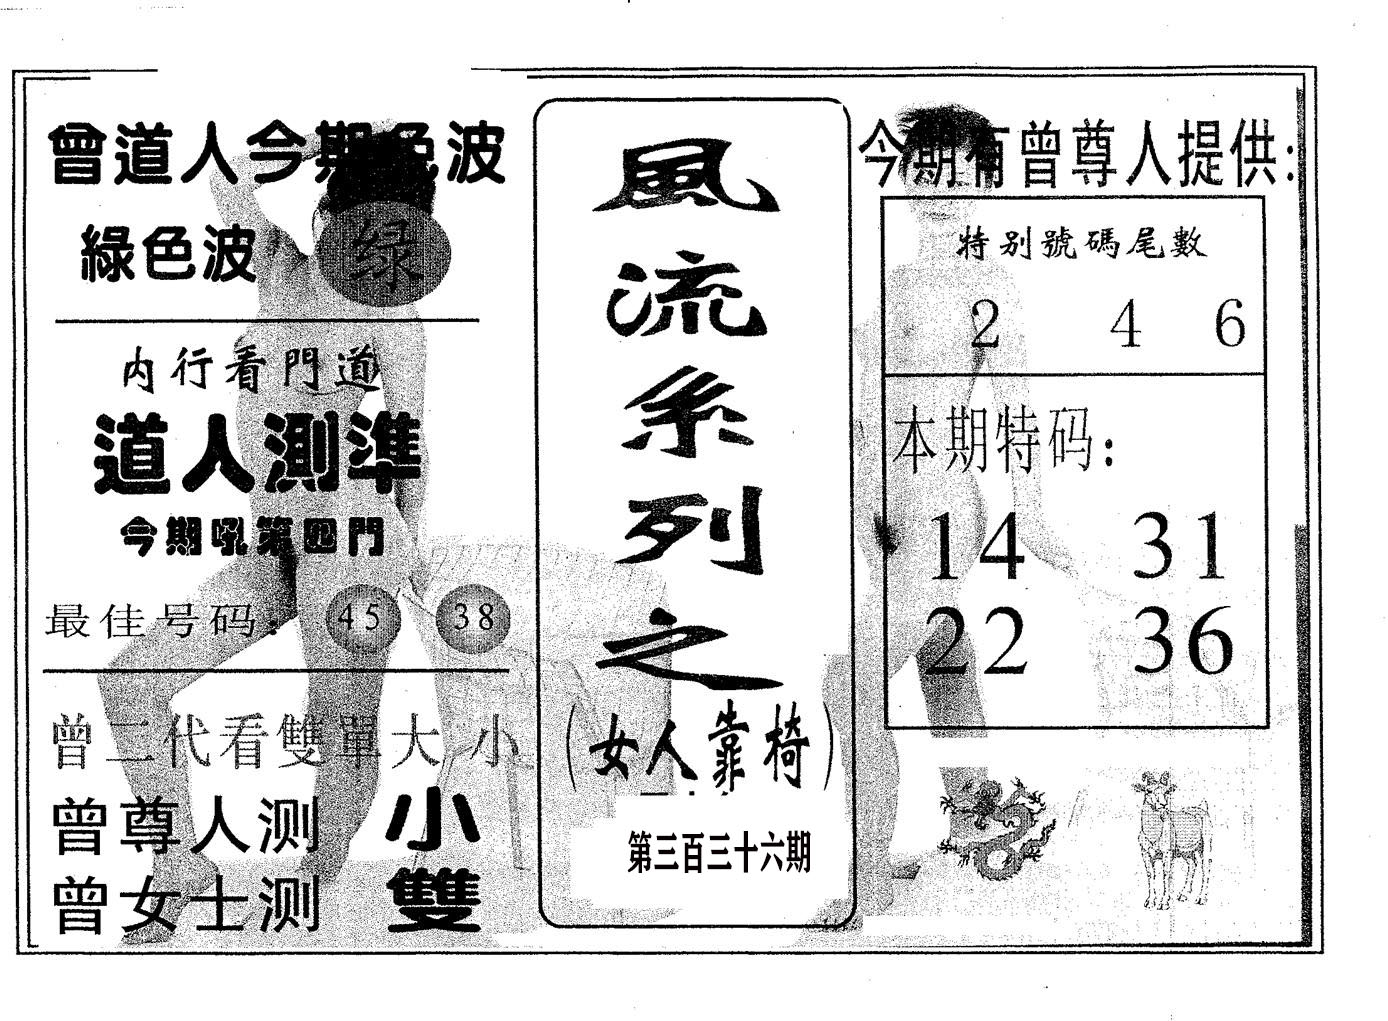 曾道人今期色波
綠色波 绿
内行看門道
道人測準
今期吼第四門
最佳号码: 45 38
曾二代看雙單大小
曾尊人测 小
曾女士测 雙
風流系列之
(女人靠椅)
第三百三十六期
今期有曾尊人提供:
特别號碼尾數
2 4 6
本期特码:
14 31
22 36